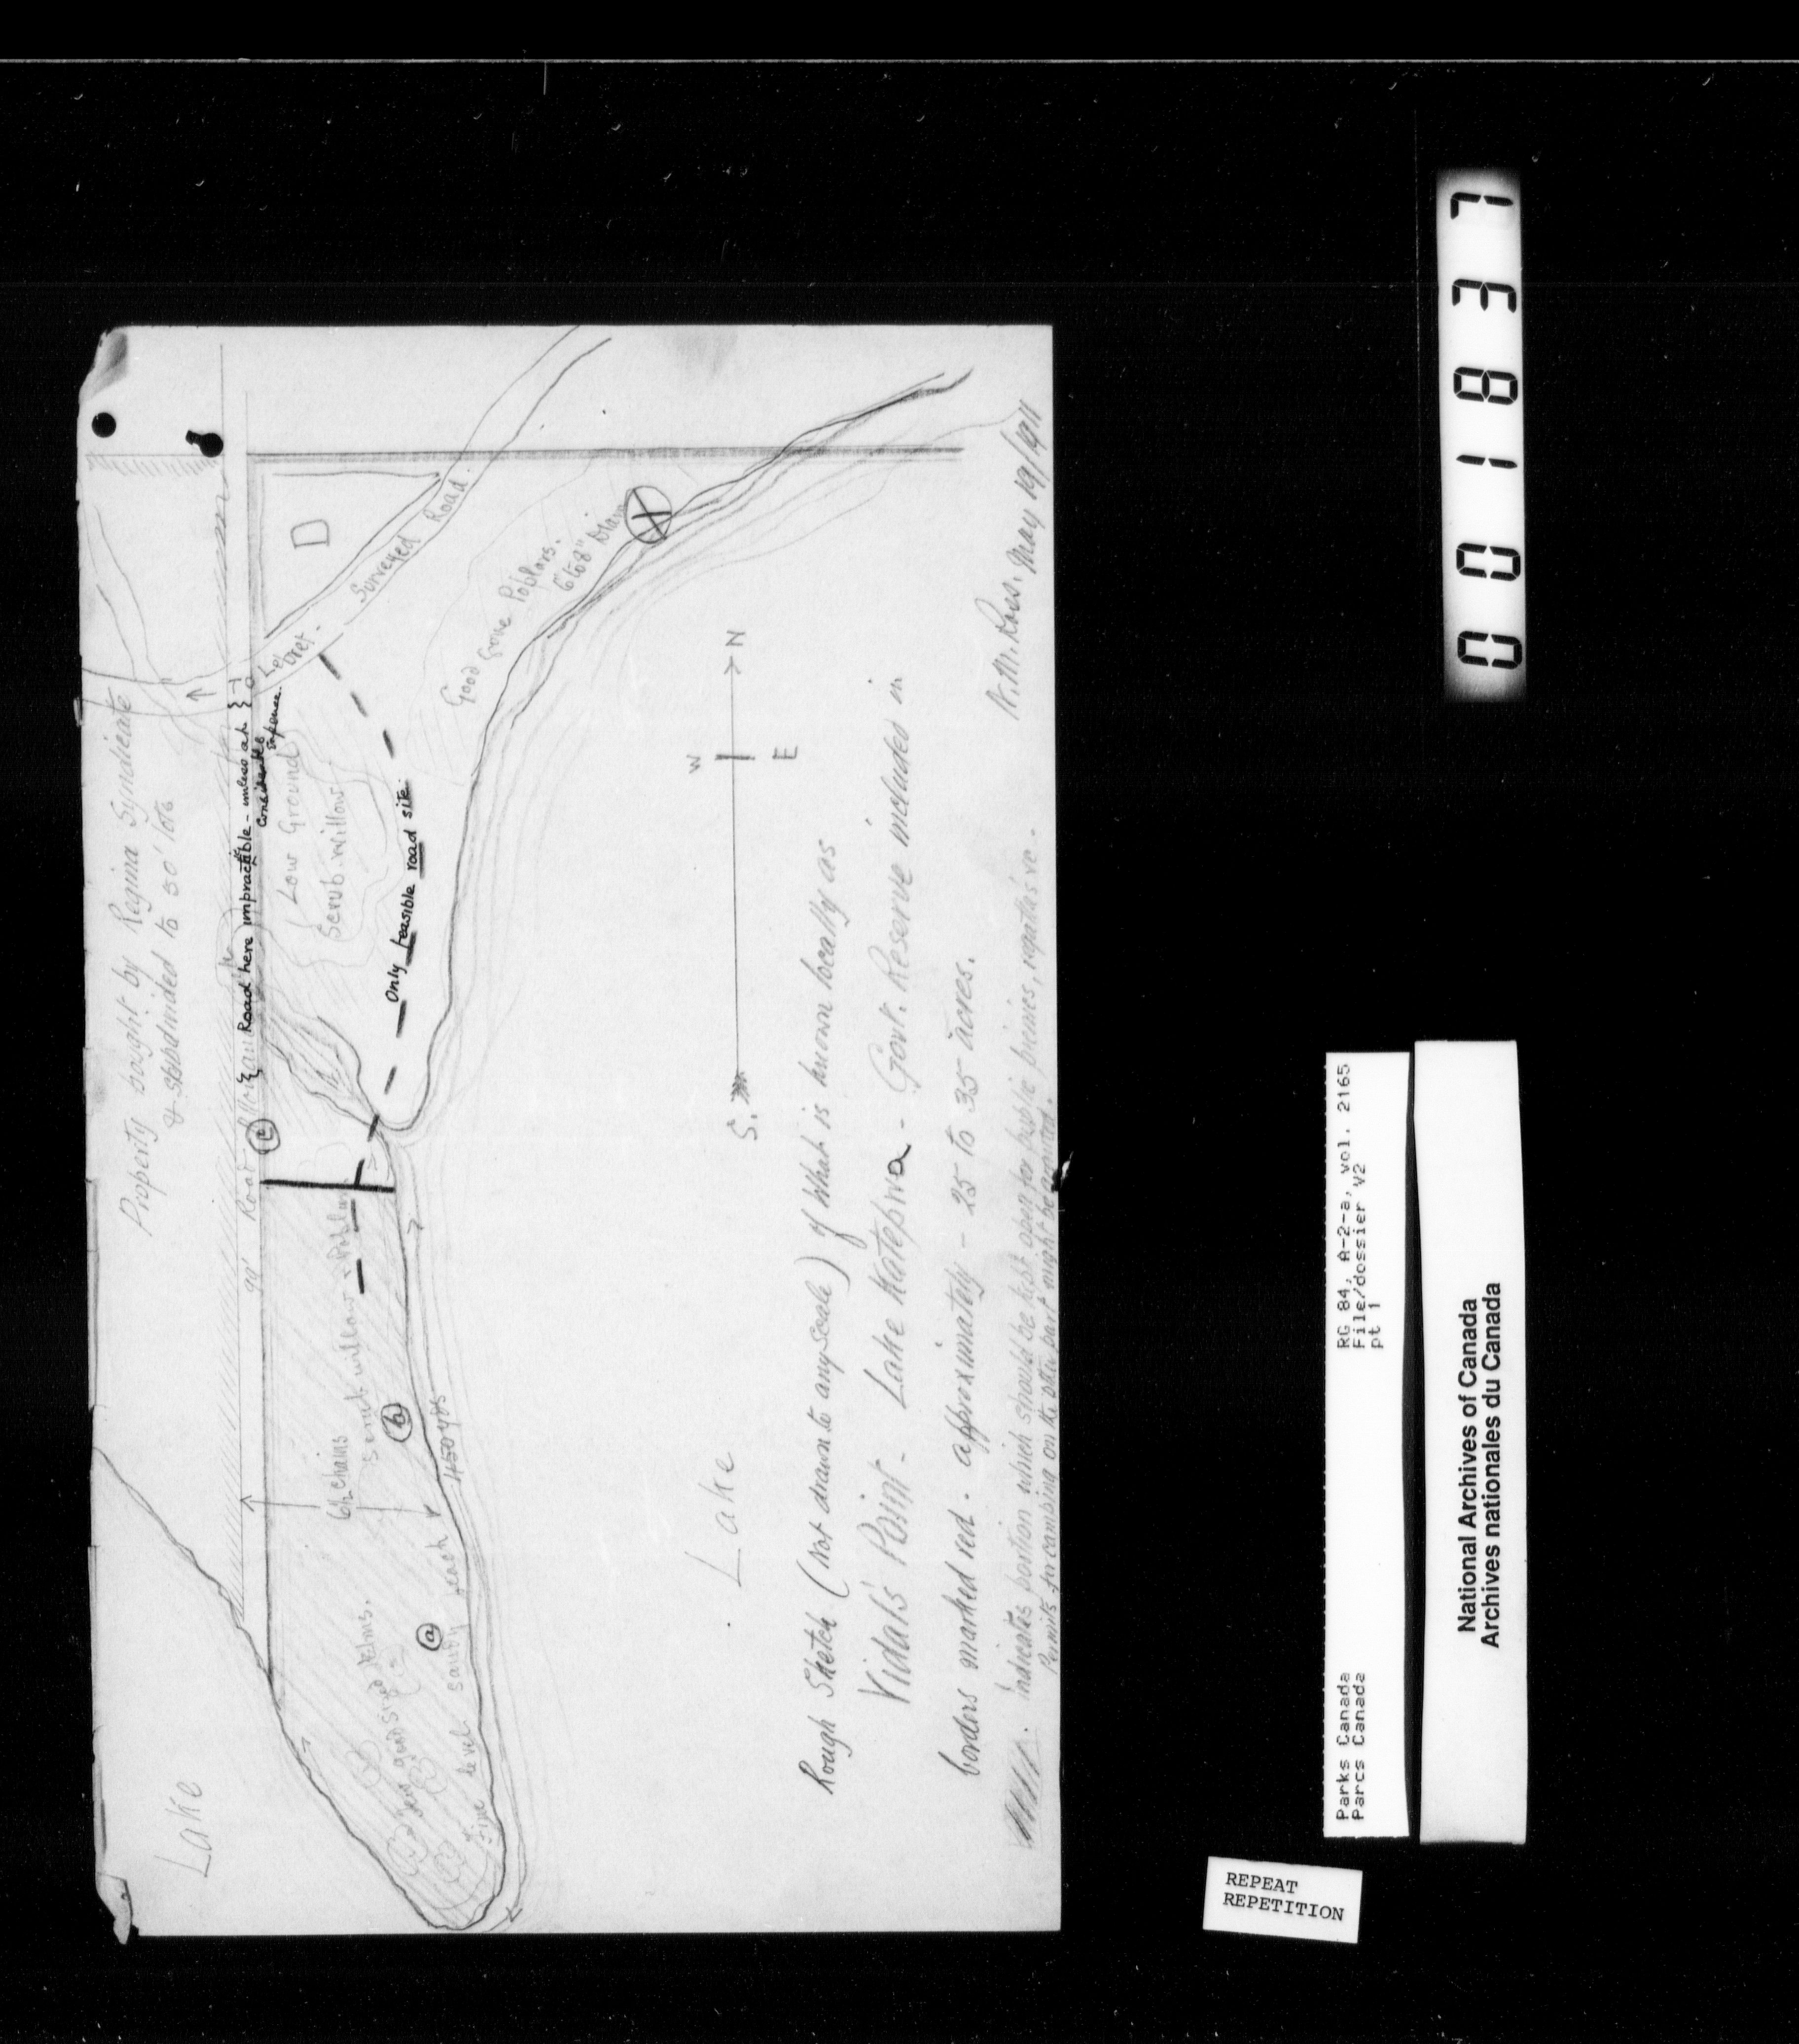 Lake
Property bought by Regina Syndicate
& subdivided to 50' lots
99' Road
Road here impracticble - unless at
considerable
expense.
to Lebret -
Surveyed Road
D
Low Ground
Scrub willow
Good Grove Poplars.
6 to 8" Diam
X
Only feasible road site.
c
6½ chains
Scrub willow - Poplar
b
450 yds
a
few good sized Elms.
Fine level sandy beach
W
S. N
E
Lake
Rough Sketch (not drawn to any scale) of what is known locally as
Vidal's Point - Lake Katepwa - Govt. Reserve included in
borders marked red. approximately - 25 to 35 acres.
indicates portion which should be kept open for public picnics, regattas &c.
Permits for camping on the other part might be granted.
N. M. Ross. May 19/1911
001837
Parks Canada RG 84, A-2-a, vol. 2165
Parcs Canada File/dossier V2
pt 1
National Archives of Canada
Archives nationales du Canada
REPEAT
REPETITION